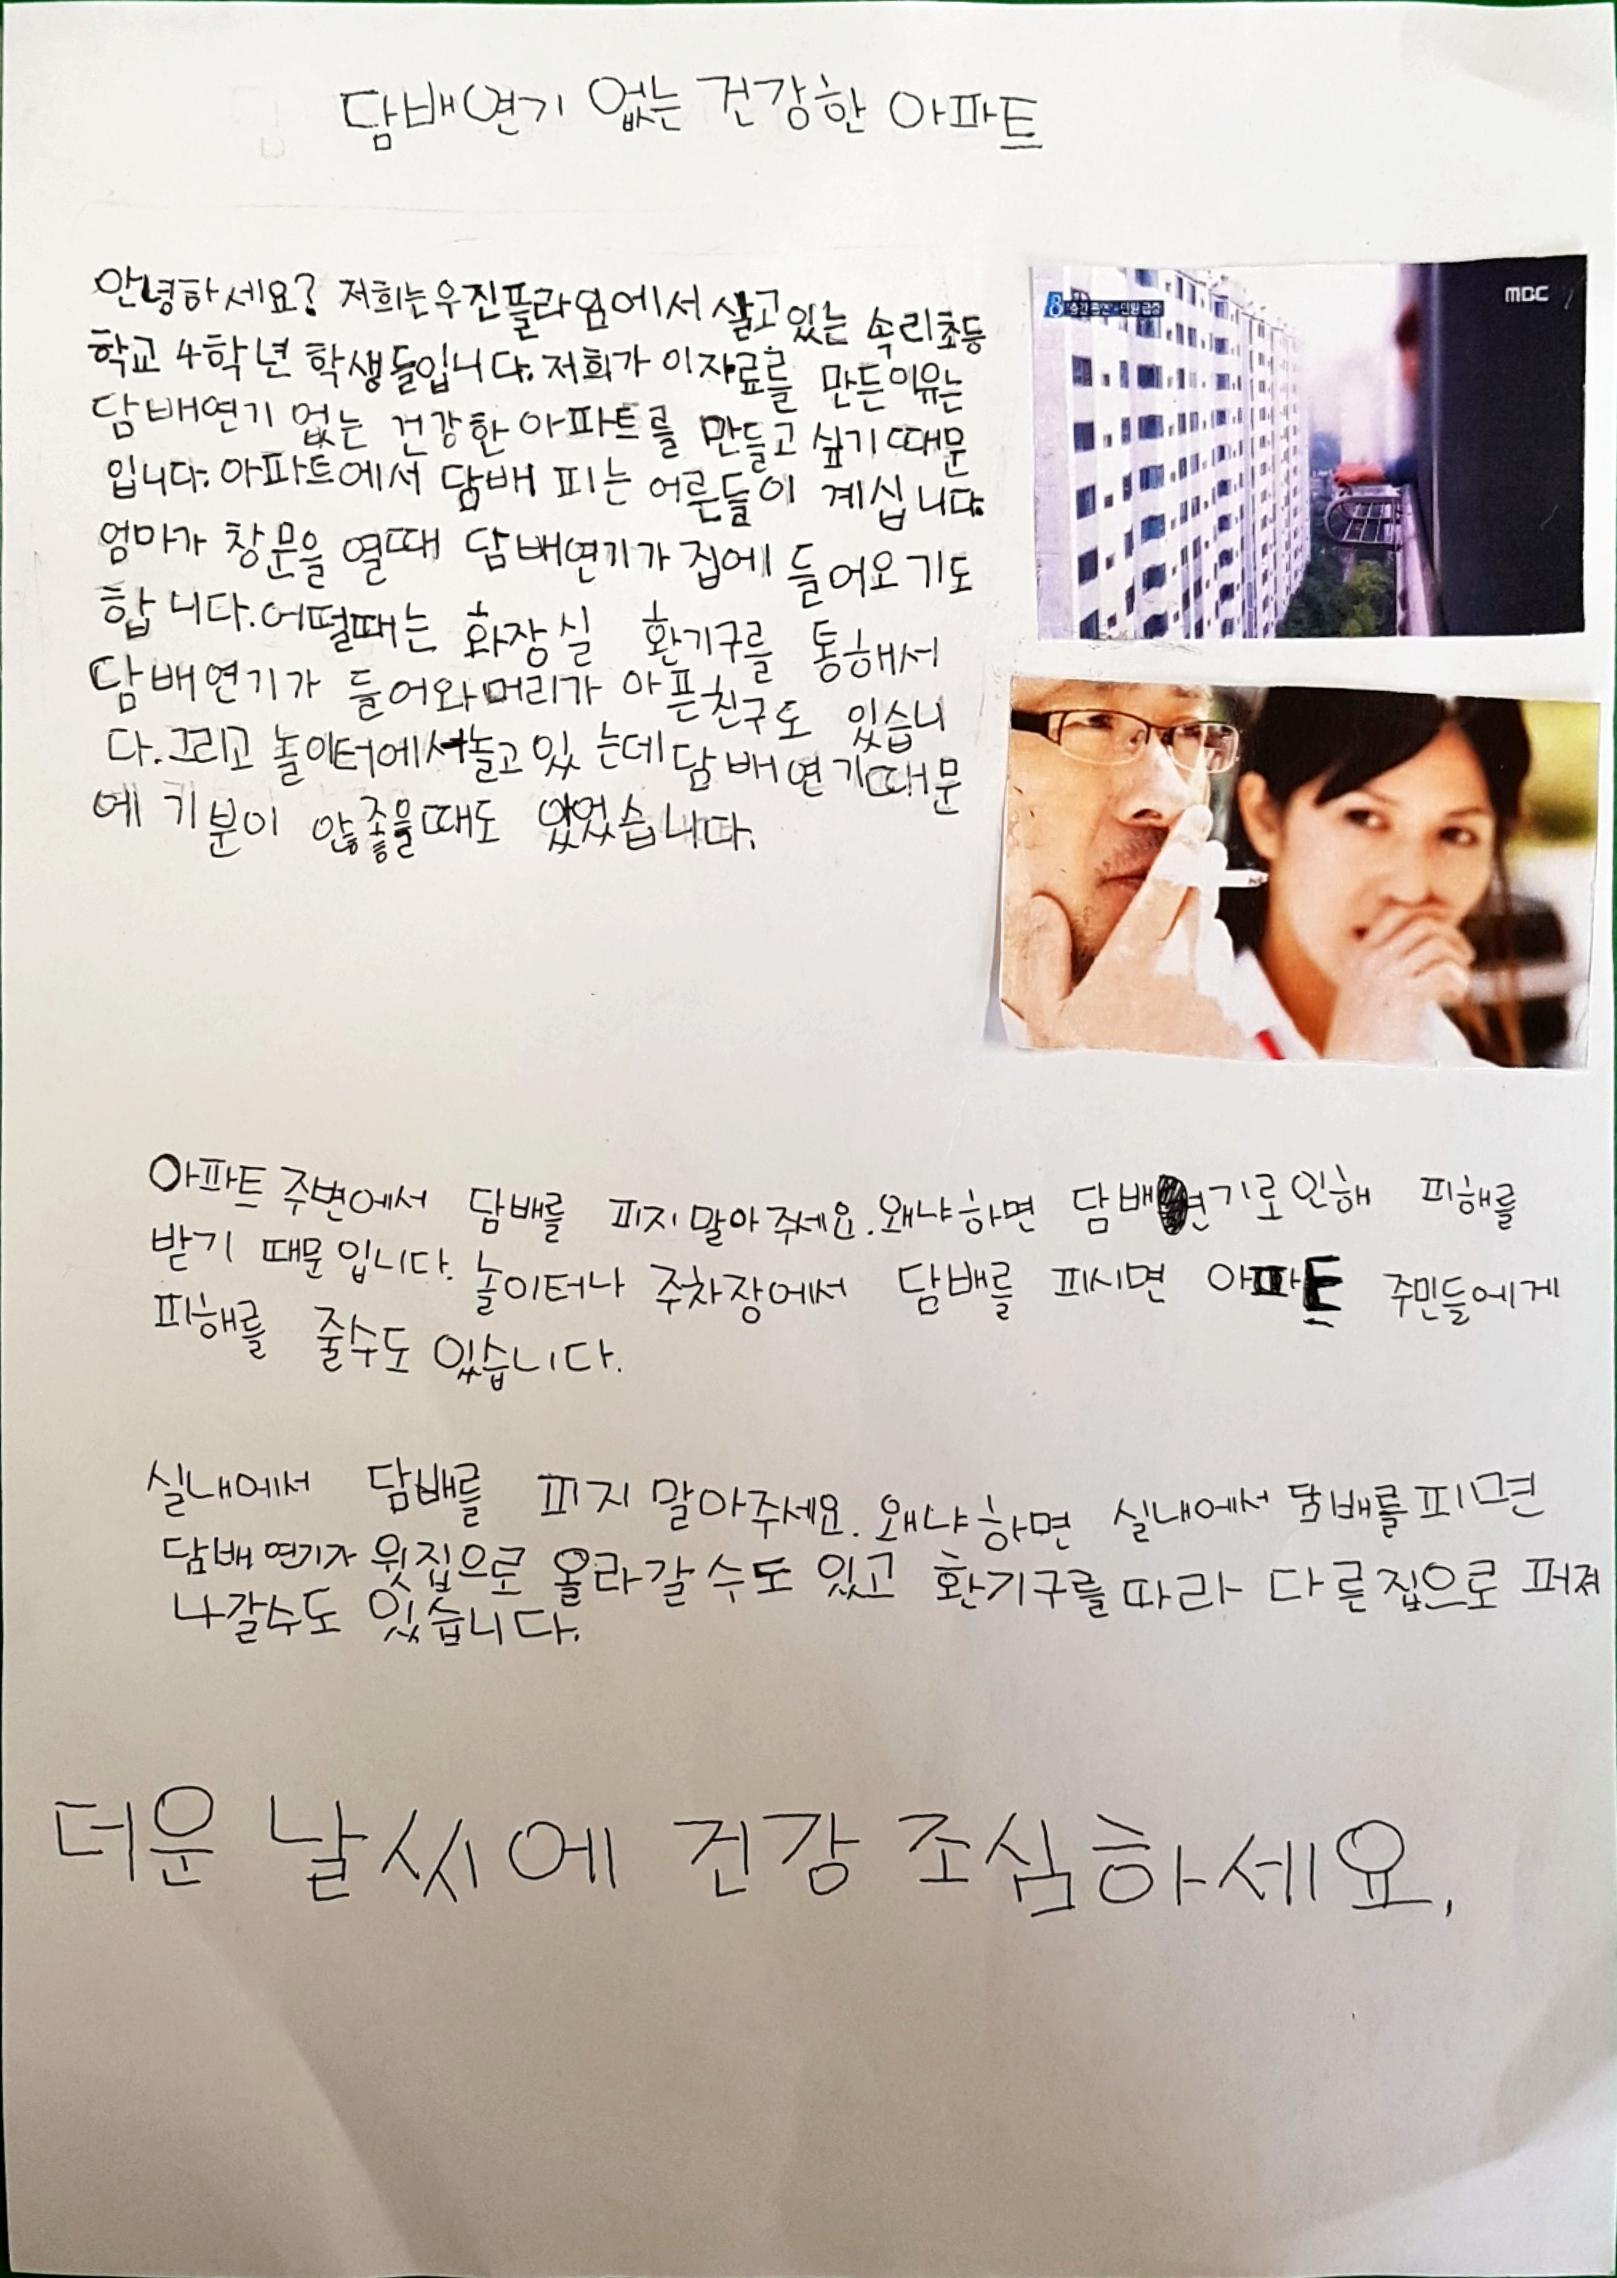 담배연기 없는 건강한 아파트
안녕하세요? 저희는우진플라임에서 살고있는 속리초등
학교 4학년 학생들입니다. 저희가 이자료를 만든이유는
담배연기 없는 건강한 아파트를 만들고 싶기때문
입니다. 아파트에서 담배 피는 어른들이 계십니다.
엄마가 창문을 열때 담배연기가 집에 들어오기도
합니다. 어떨때는 화장실 환기구를 통해서
담배연기가 들어와머리가 아픈친구도 있습니
다. 그리고 놀이터에서놀고있는데 담배연기때문
에 기분이 않좋을때도 있었습니다.
MBC
8
아파트 주변에서 담배를 피지말아주세요. 왜냐하면 담배연기로인해 피해를
받기 때문입니다. 놀이터나 주차장에서 담배를 피시면 아파트 주민들에게
피해를 줄수도 있습니다.
실내에서 담배를 피지 말아주세요. 왜냐하면 실내에서 담배를피면
담배연기가 윗집으로 올라갈수도 있고 환기구를따라 다른집으로 퍼져
나갈수도 있습니다.
더운 날씨에 건강 조심하세요.